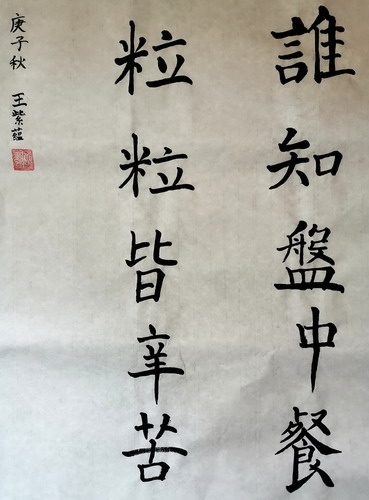 誰知盤中餐
粒粒皆辛苦
庚子秋 王紫蕴